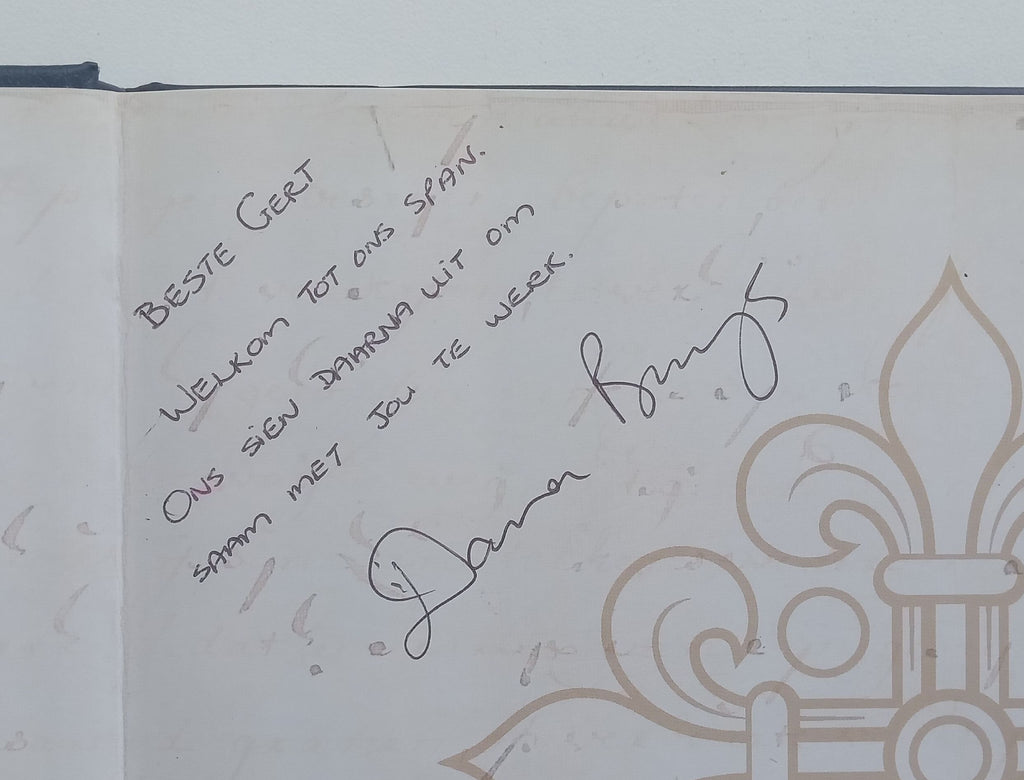 BESTE GERT
WELKOM TOT ONS SPAN.
ONS SIEN DAARNA UIT OM
SAAM MET JOU TE WERK.
Dana